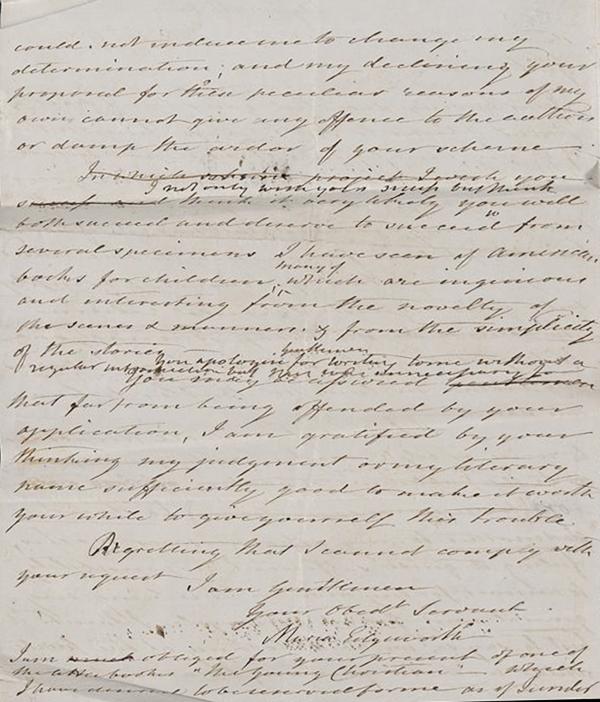 could not induce me to change my
determination; and my declining your
proposal for these peculiar reasons of my
own cannot give any offence to the authors
or damp the ardor of your scheme
In which project I wish you
I not only wish you succeed but think
and think it very likely you will
both succeed and deserve to succeed from
several specimens I have seen of American
many of
books for children, which are ingenious
and interesting from the novelty of
the scenes & manners & from the simplicity
of the stories
You apologise Gentlemen for writing to me without a
regular introduction but
You may be assured gentlemen
that far from being offended by your
application, I am gratified by your
thinking my judgment or my literary
name sufficiently good to make it worth
your while to give yourself this trouble.
Regretting that I cannot comply with
your request I am Gentlemen
Your Obedt Servant
Maria Edgeworth
I am much obliged for your present of one of
the little books "The Young Christian" which
I have desired to be reserved for me as I under